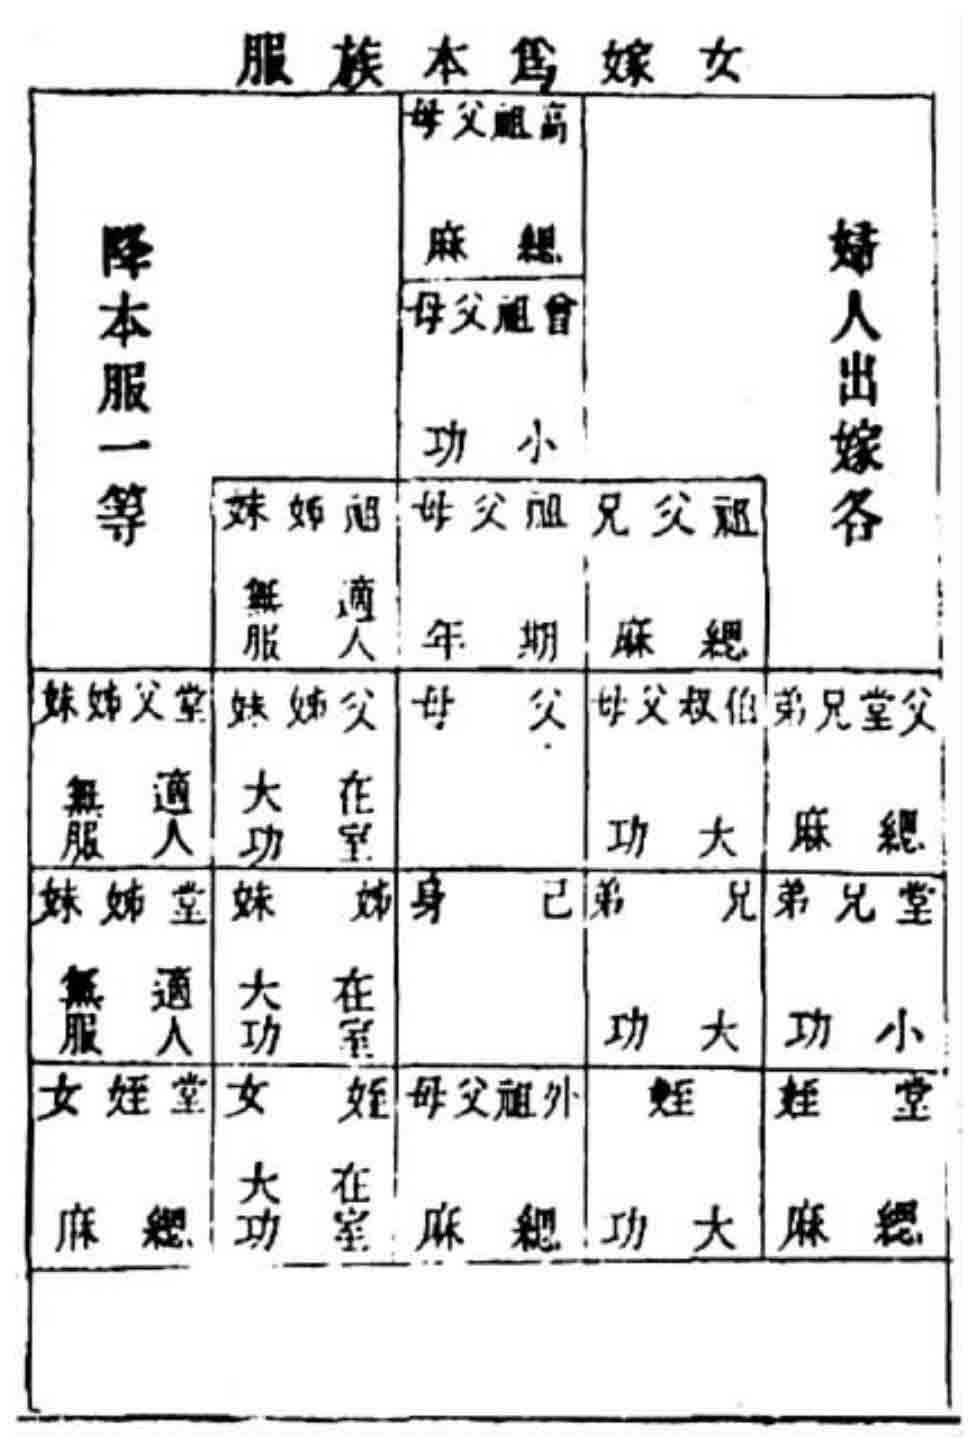 女嫁爲本族服
婦人出嫁各
降本服一等
高祖父母
緦麻
曾祖父母
小功
祖父兄
緦麻
祖父母
期年
祖姊妹
適人
無服
父堂兄弟
緦麻
伯叔父母
大功
父母
父姊妹
在室
大功
堂父姊妹
適人
無服
堂兄弟
小功
兄弟
大功
己身
姊妹
在室
大功
堂姊妹
適人
無服
堂姪
緦麻
姪
大功
外祖父母
緦麻
姪女
在室
大功
堂姪女
緦麻